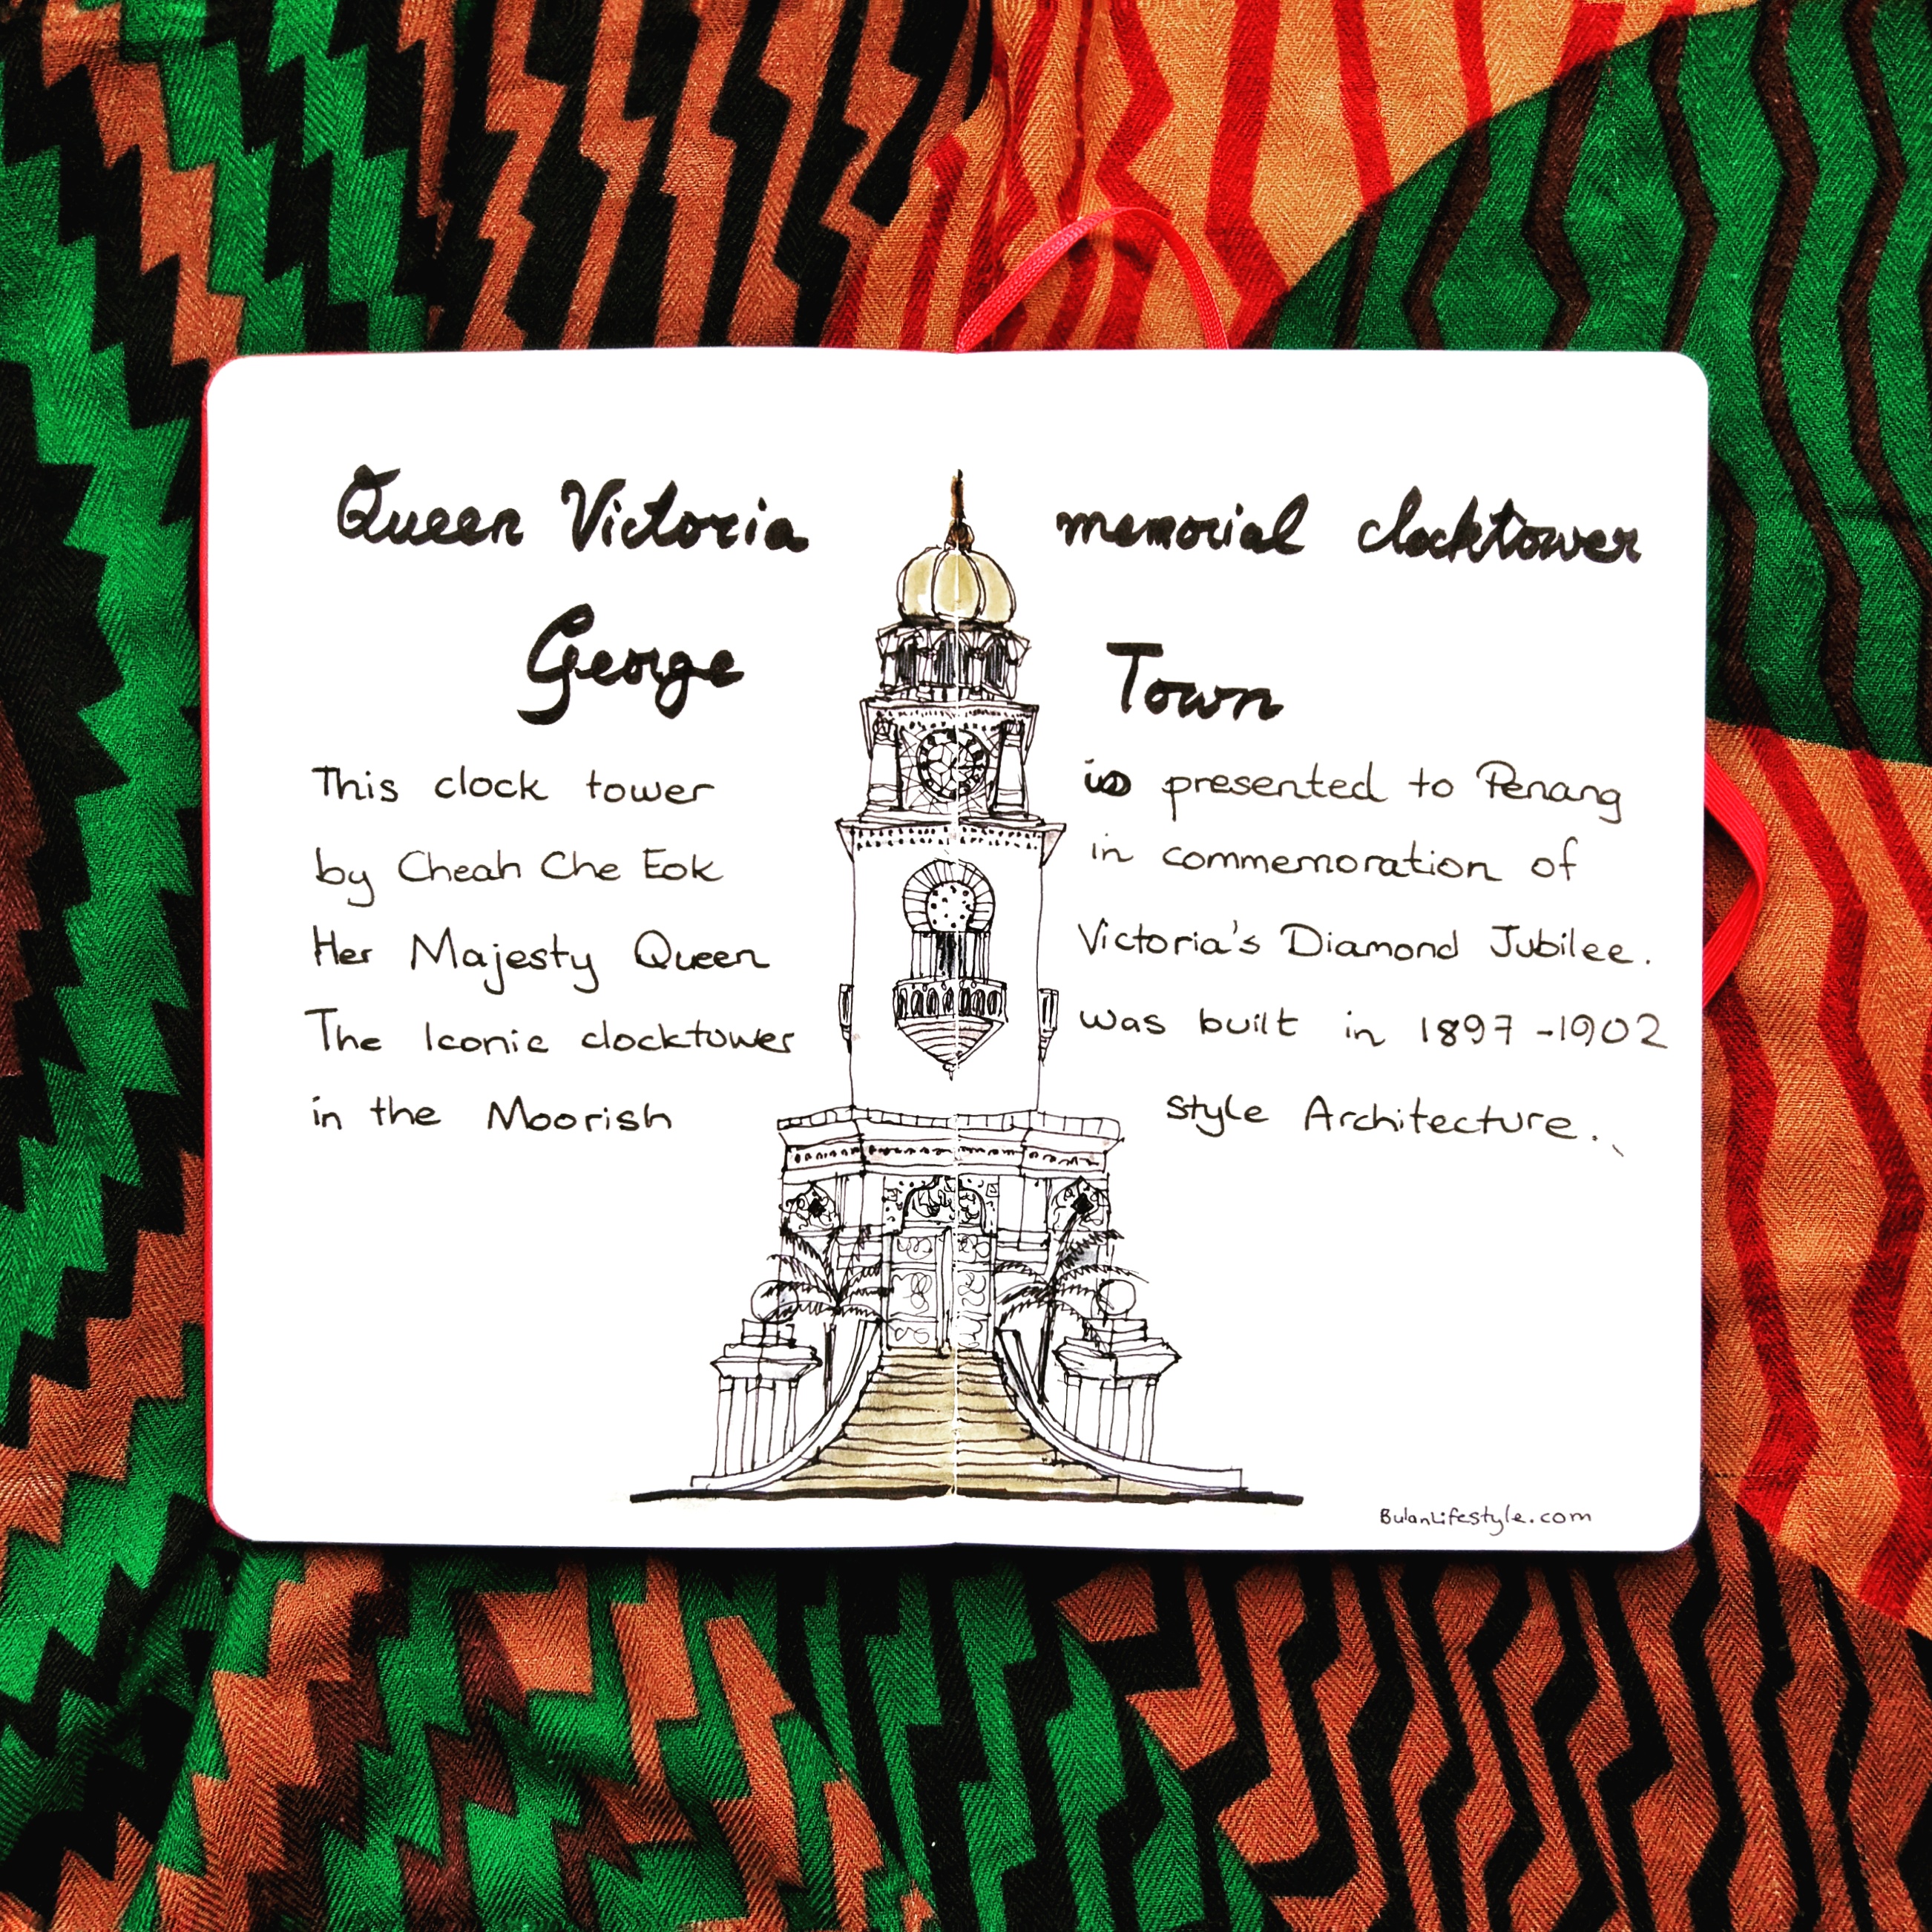 Queen Victoria memorial clocktower
George Town
This clock tower is presented to Penang
by Cheah Che Eok in commemoration of
Her Majesty Queen Victoria's Diamond Jubilee.
The Iconic clocktower was built in 1897-1902
in the Moorish style Architecture.
BulanLifestyle.com